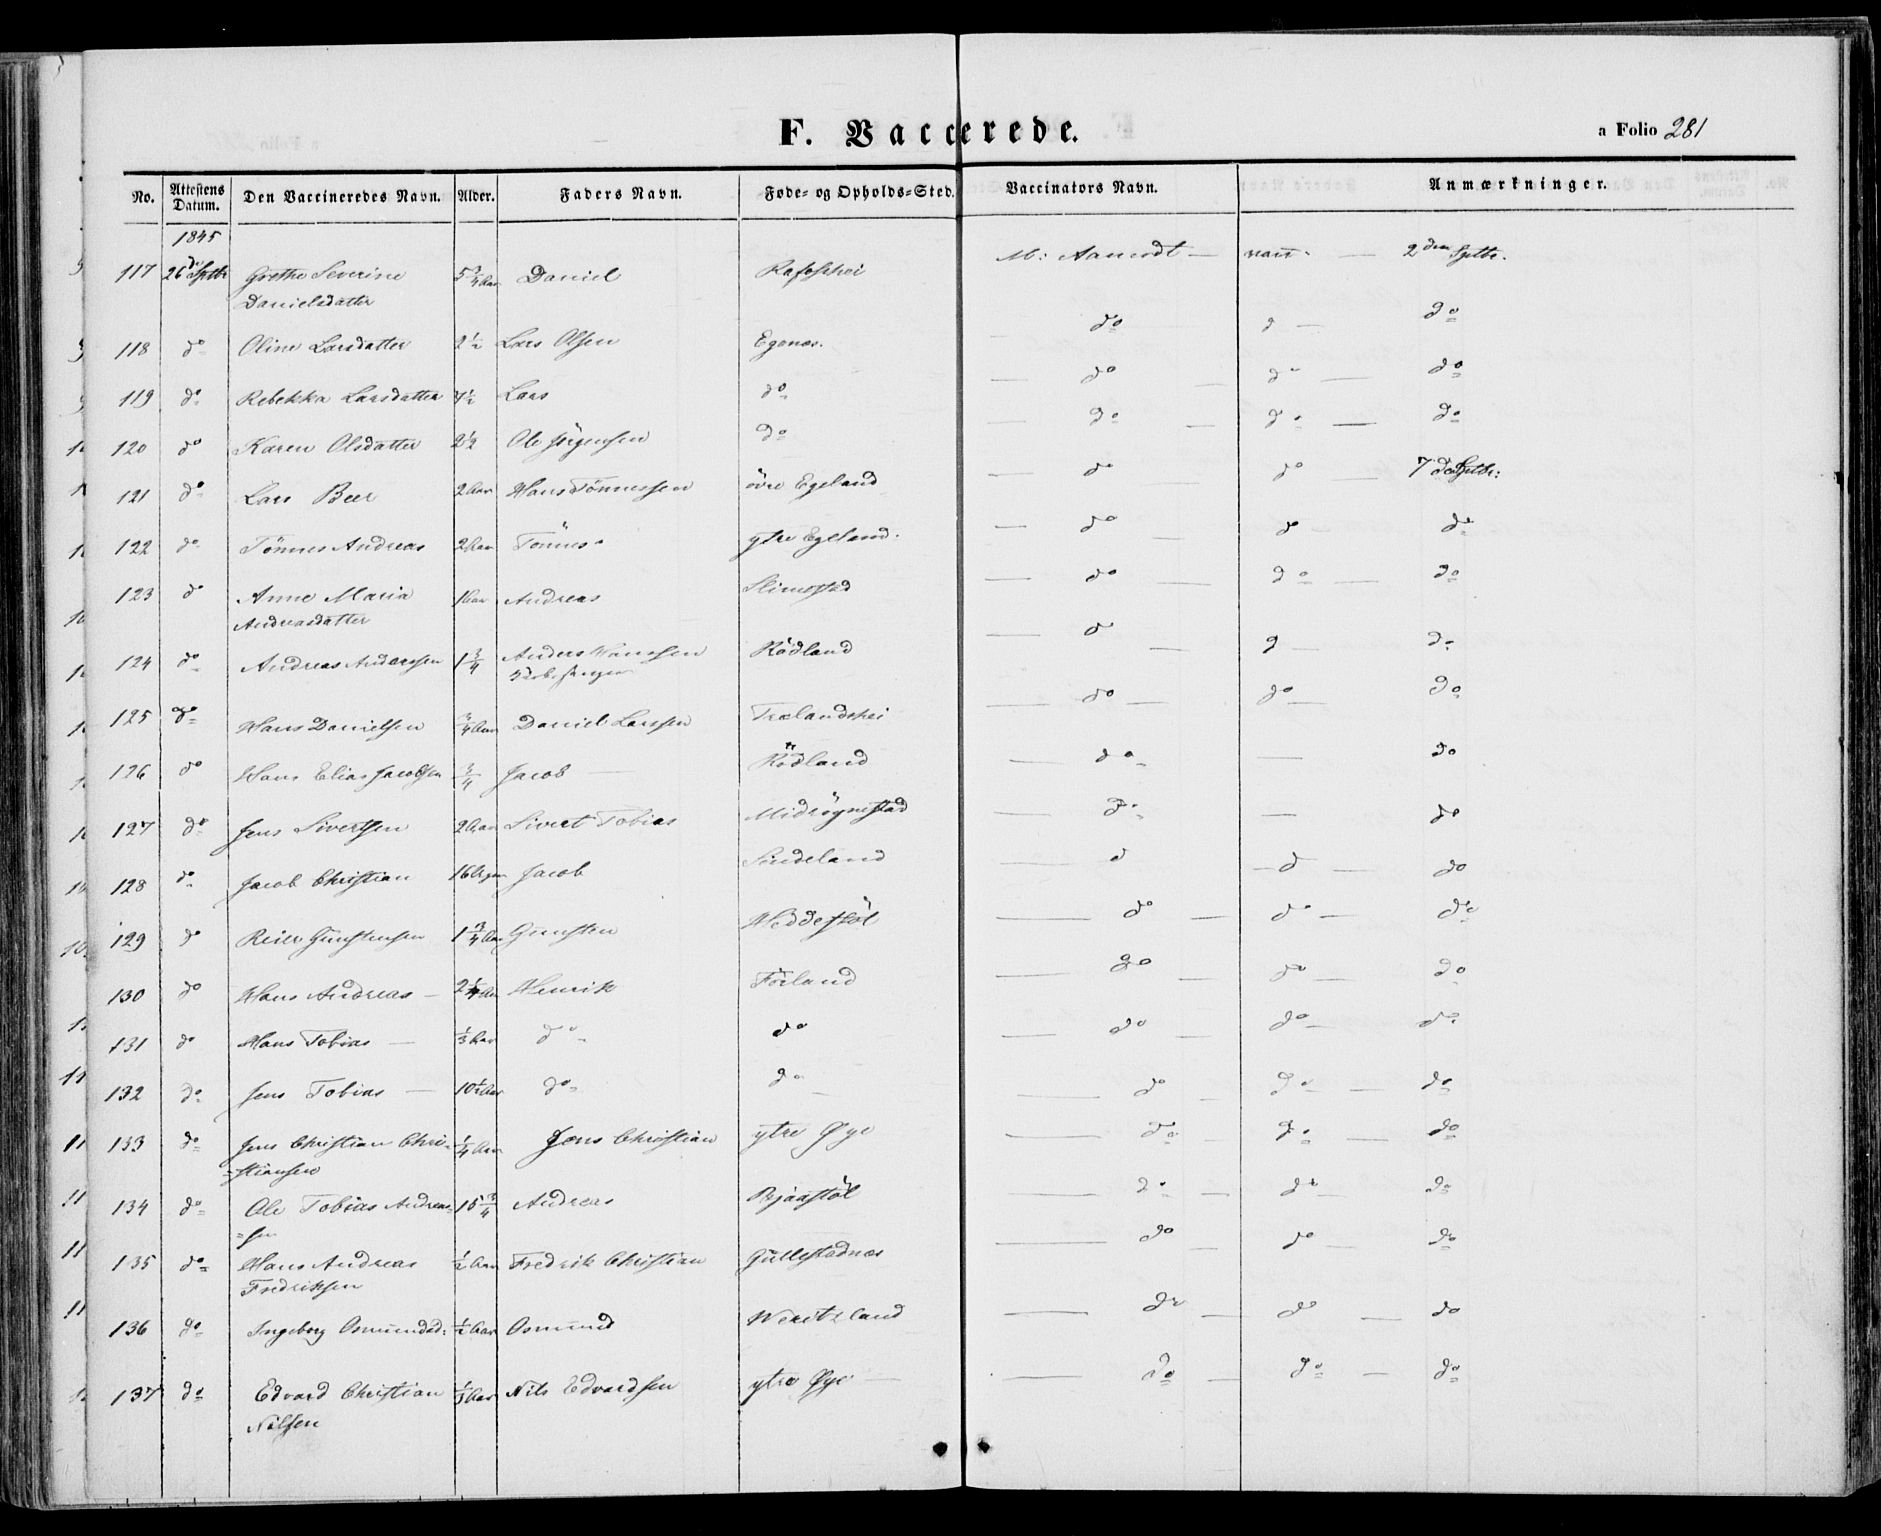 F. Vaccerede.
a Folio 281
No. Attestens Datum. Den Vaccineredes Navn. Alder. Faders Navn. Føde- og Opholds-Sted. Vaccinators Navn. Anmærkninger.
1845
117 26de Sptbr Grethe Severine 5 3/4 Aar Daniel M: Aamodt — — 2den Sptbr.
Danielsdatter
118 do Oline Larsdatter 2 1/2 Lars Olsen Egenæs. do d — do
119 do Rebekka Larsdatter 4 1/2 Lars do do do do
120 do Karen Olsdatter 2 1/2 Ole Jörgensen do do do do
121 do Lars Beer 2 Aar Hans Tönnessen övre Egeland do do 7de Sptbr:
122 do Tönnes Andreas 2 Aar Tönnes ytre Egeland. do do do
123 do Anne Maria 1 Aar Andreas Slimestad do do do
Andreasdatter
124 do Andreas Anderssen 1 3/4 Anders Hanssen Rödland do d — do
125 do Hans Danielsen 3/4 Aar Daniel Larssen Trælandshei do do do
126 do Hans Elias Jacobsen 3/4 Jacob — Rödland do — do
127 do Jens Sivertsen 2 Aar Sivert Tobias Midtögnestad do — do
128 do Jacob Christian 16 Jacob Sindeland d d do
129 do Reier Gunstensen 1 3/4 Aar Gunsten Heddestöl do do do
130 do Hans Andreas — 2 1/4 Aar Henrik Förland do do do
131 do Hans Tobias — 1/3 Aar do do do do do
132 do Jens Tobias — 10 1/2 Aar do do do do do
133 do Jens Christian Chri- 1/4 Aar Jens Christian ytre Øye do do do
=stiansen
134 do Ole Tobias Andreas- 15 3/4 Andreas Bjaastöl do do do
=sen
135 do Hans Andreas 1/2 Aar Fredrik Christian Gullestadnes do do do
Fredriksen
136 do Ingeborg Osmundsd: 1/2 Aar Osmund do do do
137 do Edvard Christian 1/3 Aar Nils Edvardsen ytre Øye — do do do
Nilsen